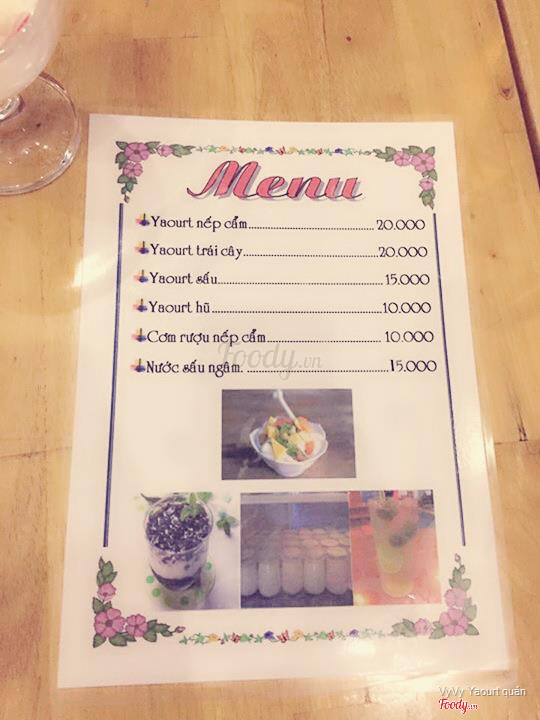 Menu
Yaourt nếp cẩm........................................ 20.000
Yaourt trái cây...........................................20.000
Yaourt sấu..................................................... 15.000
Yaourt hũ......................................................10.000
Cơm rượu nếp cẩm.................................... 10.000
Nước sấu ngâm. ............................................15.000
Foody.vn
VyVy Yaourt quán
Foody.vn